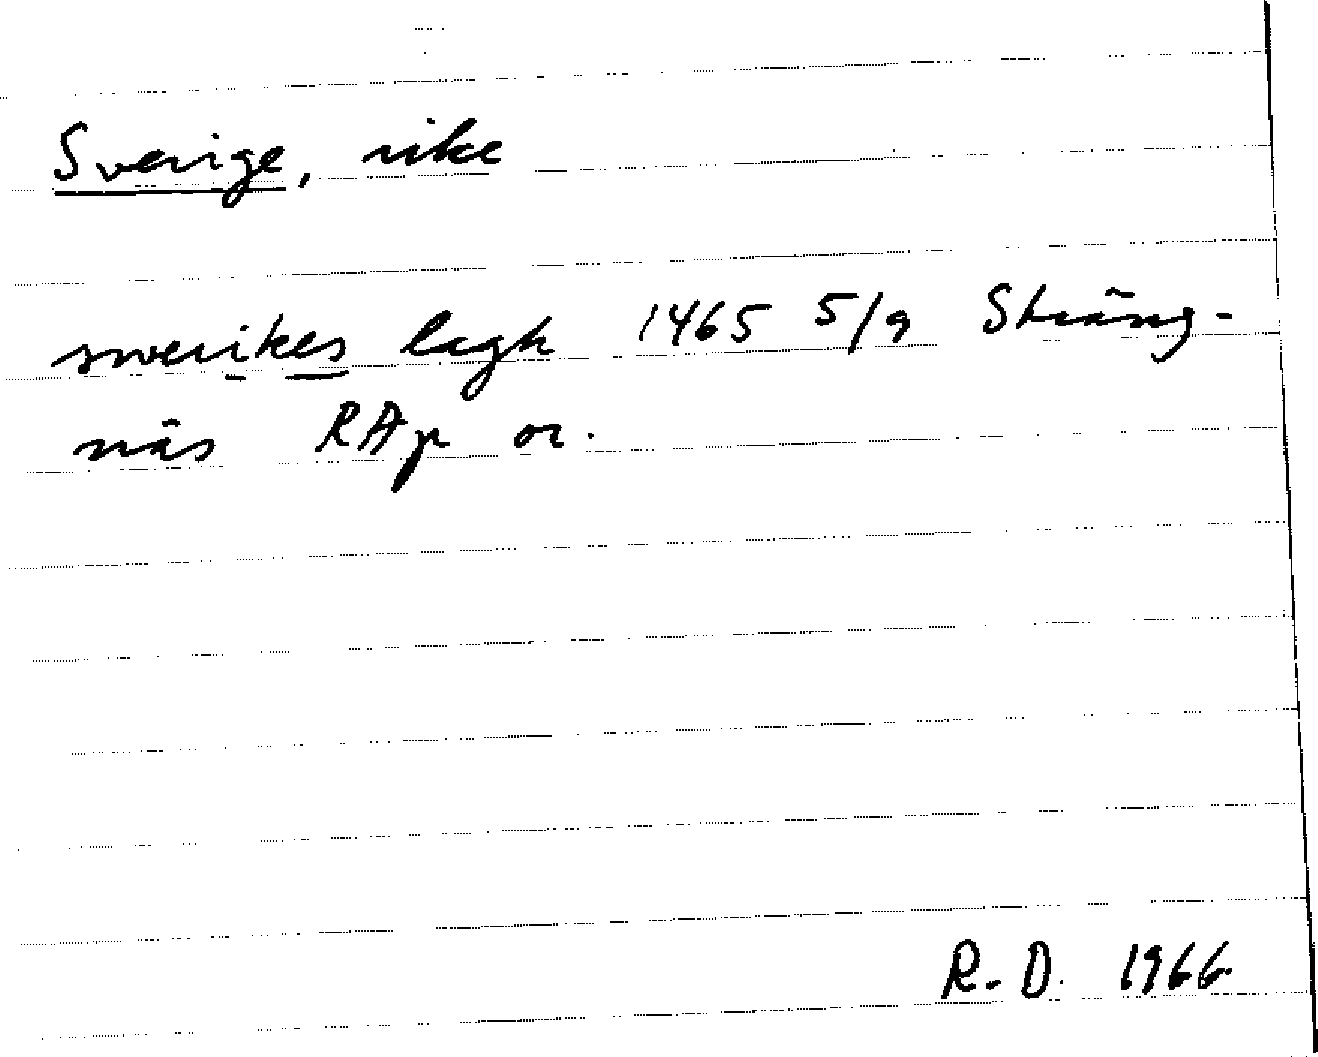 Sverige, rike
swerikes lagh 1465 5/9 Sträng-
näs RAp or.
R. D. 1966